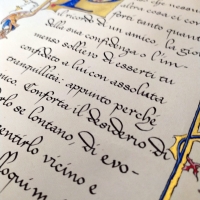 che nessun
altra cosa ci con
forti tanto quan
il ricordo di un amico, la gio
della sua confidenza o l'im
menso sollievo di esserti tu
confidato a lui con assoluta
tranquillità: appunto perché
amico. Conforta il desiderio di
se lontano, di evo
sentirlo vicino e